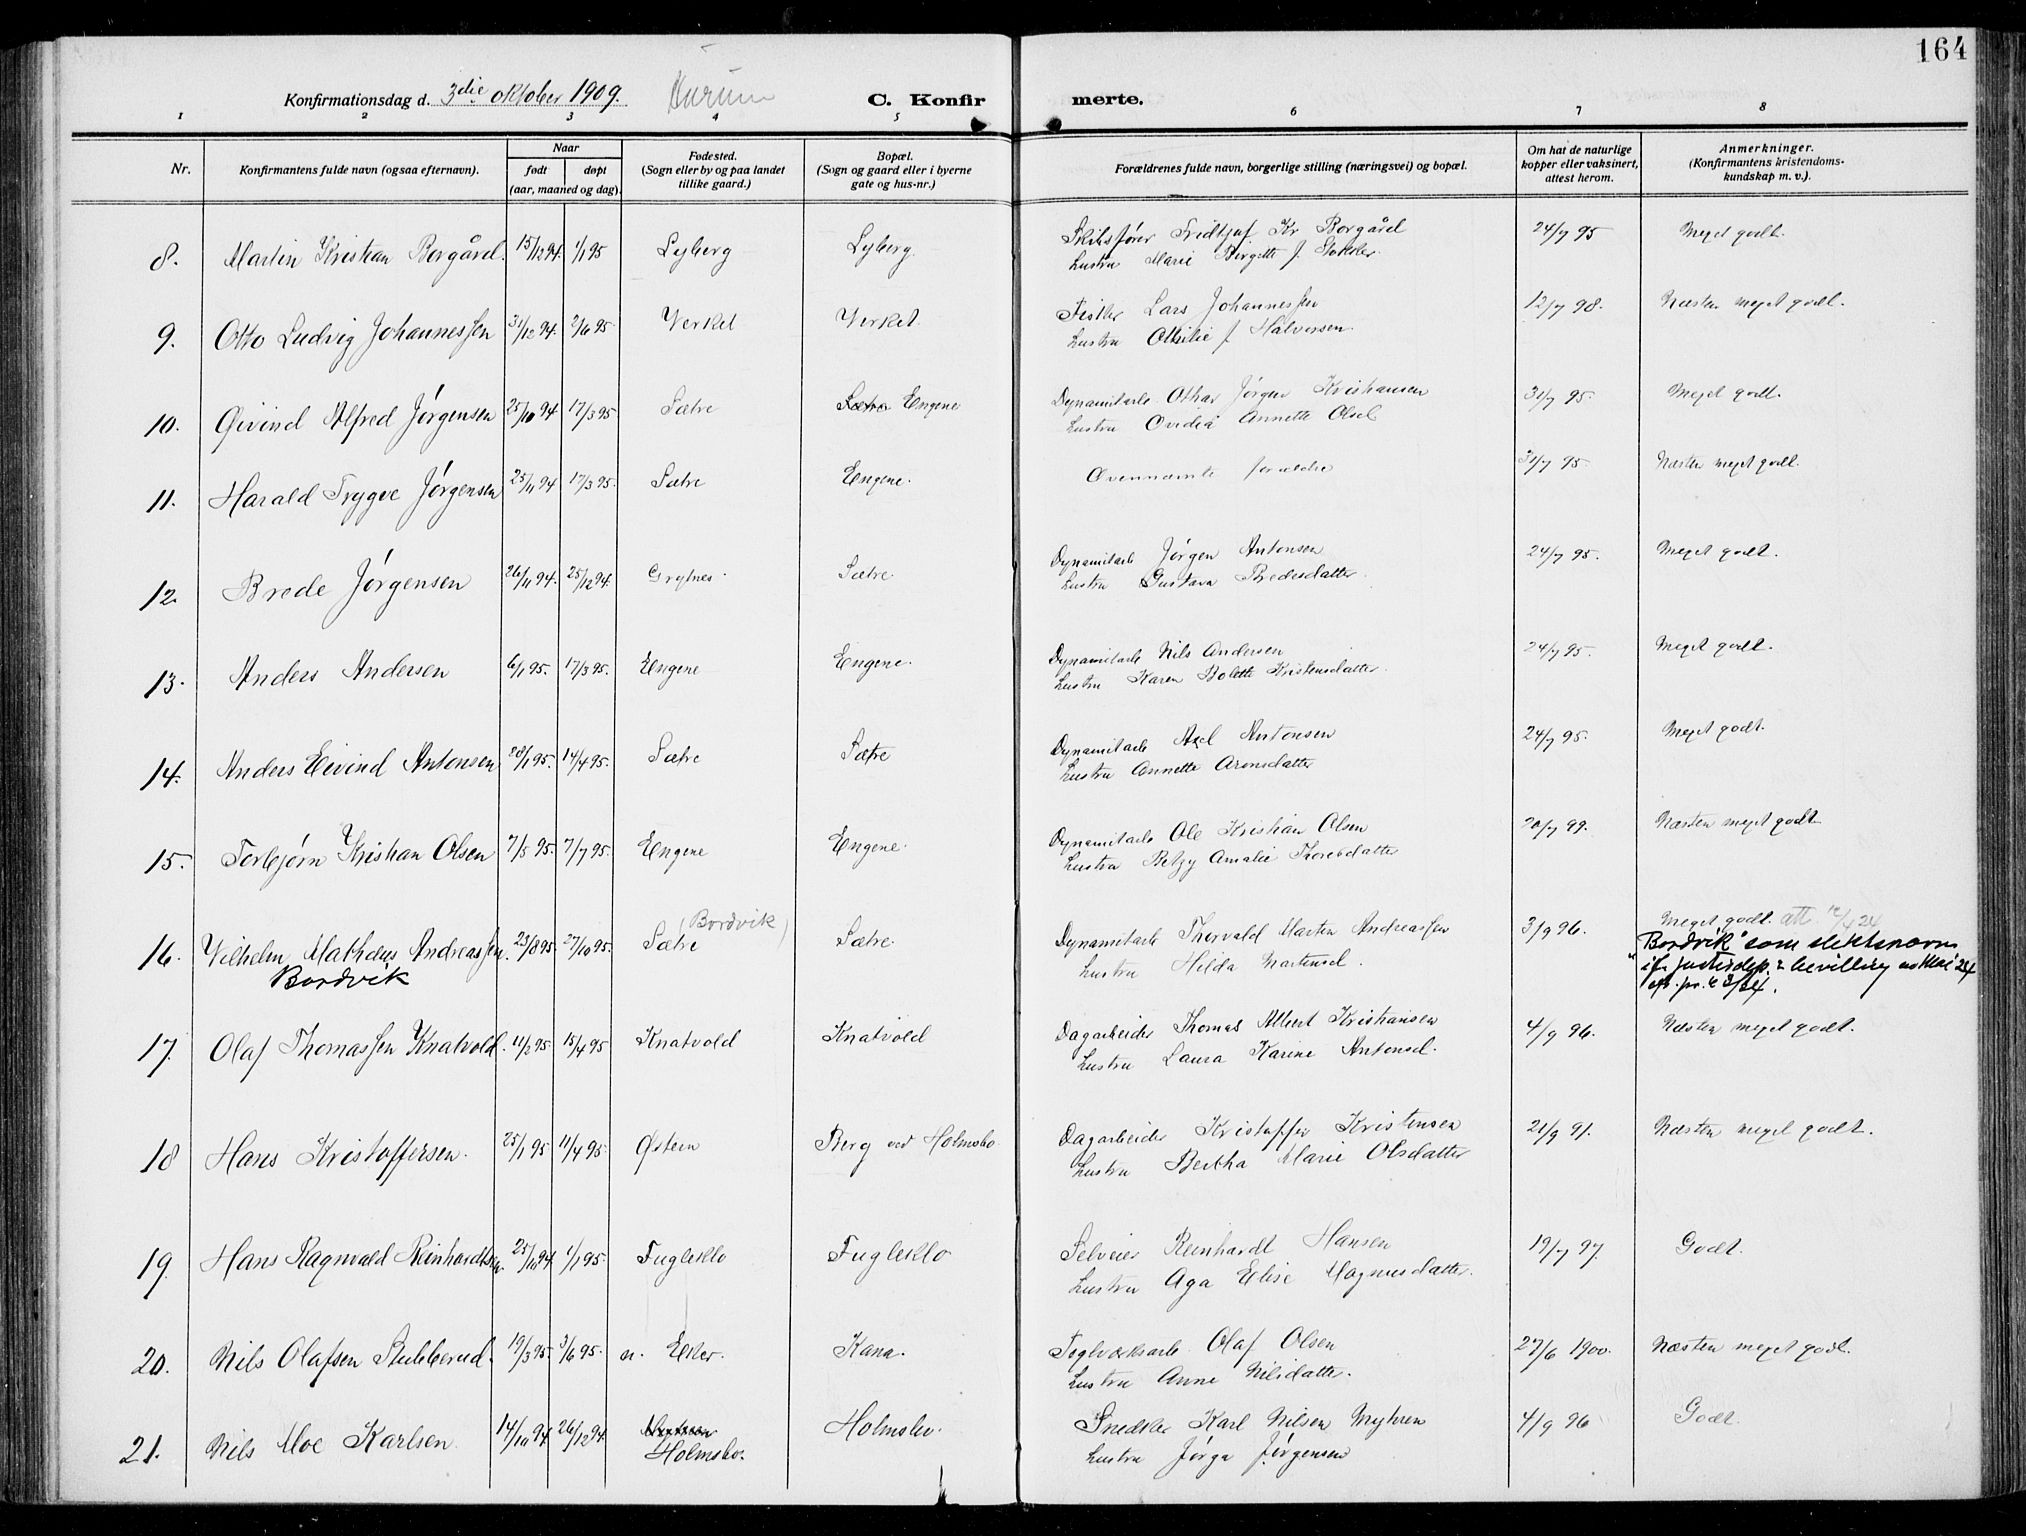 164
Konfirmationsdag d. 3die oktober 1909. Hurum C. Konfir merte.
1 2 3 4 5 6 7 8
Nr. Konfirmantens fulde navn (ogsaa efternavn). Naar født døpt (aar, maaned og dag). Fødested. (Sogn eller by og paa landet tillike gaard.) Bopæl. (Sogn og gaard eller i byerne gate og hus-nr.) Forældrenes fulde navn, borgerlige stilling (næringsvei) og bopæl. Om hat de naturlige kopper eller vaksinert, attest herom. Anmerkninger. (Konfirmantens kristendoms-kundskap m. v.).
8. Martin Kristian Borgård. 15/12 94. 1/1 95 Lyberg Lyberg. Skibsfører Fridtjof Kr Borgård 24/7 95 Meget godt.
Hustru Marie Birgitte f.
9. Otto Ludvig Johannessen 31/12 94. 2/6 95. Verket Verket. Fisker Lars Johannessen 12/7 98. Næsten meget godt.
Hustru Othilie f. Halvorsen.
10. Øivind Alfred Jørgensen 25/10 94 17/3 95. Sætre Sætre Engene Dynamitarb Othar Jørgen Kristiansen 31/7 95. Meget godt.
Hustru Ovidia Annette Olsd.
11. Harald Trygve Jørgensen 25/11 94 17/3 95. Sætre Engene. Ovennævnte forældre 31/7 95. Næsten meget godt.
12. Brede Jørgensen 26/11 94. 25/12 94. Grytnes. Sætre Dynamitarb Jørgen Antonsen 24/7 95. Meget godt.
Hustru Gustava Bredesdatter.
13. Anders Andersen 6/1 95. 17/3 95. Engene Engene. Dynamitarb Nils Andersen 24/7 95. Meget godt.
Hustru Karen Bolette Kristensdatter.
14. Anders Eivind Antonsen 28/1 95. 14/4 95. Sætre Sætre Dynamitarb Axel Antonsen 24/7 95. Meget godt.
Hustru Annette Aronsdatter
15. Torbjørn Kristian Olsen 7/5 95. 7/7 95. Engene Engene. Dynamitarb Ole Kristian Olsen 20/7 99. Næsten meget godt
Hustru Betzy Amalie Thoresdatter
16. Vilhelm Mathæus Andreassen. 23/8 95. 27/10 95. Sætre (Bordvik) Sætre. Dynamitarb Thorvald Martin Andreassen 3/9 96. Meget godt. att. 12/4 24
Bordvik Hustru Hilda Martinsd. "Bordvik" som slektsnavn
if. justisdep.s bevilling av Mai 24
17. Olaf Thomassen Knatvold. 11/2 95. 15/4 95 Knatvold Knatvold Dagarbeider Thomas Albert Kristiansen 4/9 96. Næsten meget godt.
Hustru Laura Karine Antonsd.
18 Hans Kristoffersen. 25/1 95 11/4 95. Østern Berg ved Holmsbo Dagarbeider Kristoffer Kristensen 21/9 91. Næsten meget godt.
Hustru Bertha Marie Olsdatter
19. Hans Ragnvald Reinhardtsen. 25/10 94. 1/1 95. Fugleklo Fugleklo Selveier Reinhardt Hansen 19/7 97. Godt.
Hustru Aga Elise Magnusdatter.
20. Nils Olafsen Stubberud. 19/3 95. 3/6 95. n. Eker. Kana. Teglverksarb. Olaf Olsen 27/6 1900. Næsten meget godt.
Hustru Anne Nilsdatter.
21. Nils Moe Karlsen. 14/10 94. 26/12 94. Holmsbo. Holmsbo. Snedker Karl Nilsen Myhren 4/9 96 Godt.
Hustru Jørga Jørgensen